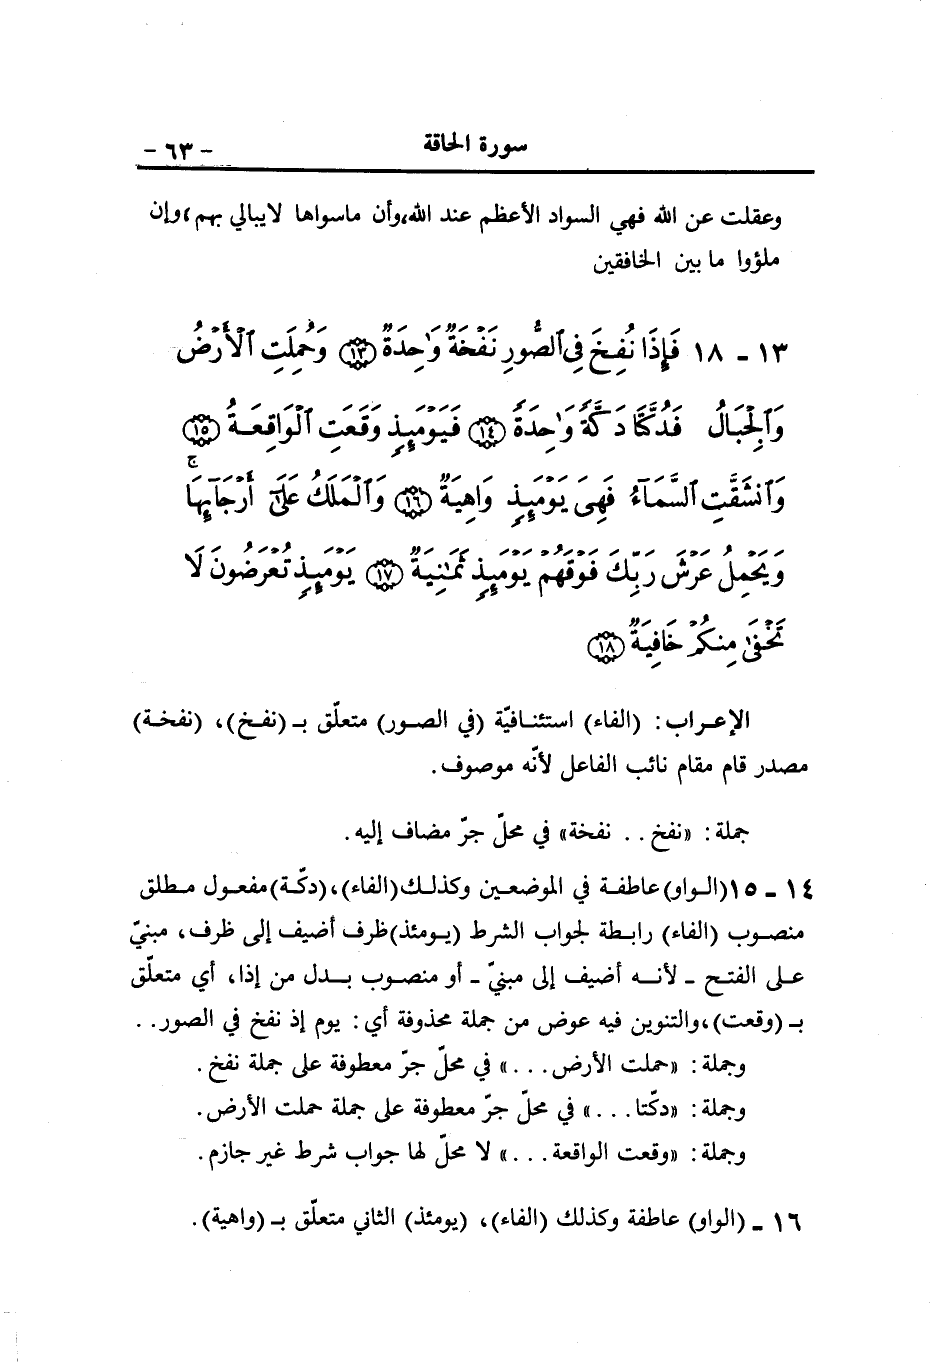 سورة الحاقة - ٦٣ -
وعقلت عن الله فهي السواد الأعظم عند الله،وأن ماسواها لايبالي بهم ،وإن
ملؤوا ما بين الخافقين
١٣ - ١٨ فَإِذَا نُفِخَ فِي ٱلصُّورِ نَفْخَةٌ وَٰحِدَةٌ ﴿١٣﴾ وَحُمِلَتِ ٱلْأَرْضُ
وَٱلْجِبَالُ فَدُكَّتَا دَكَّةً وَٰحِدَةً ﴿١٤﴾ فَيَوْمَئِذٍ وَقَعَتِ ٱلْوَاقِعَةُ ﴿١٥﴾
وَٱنشَقَّتِ ٱلسَّمَآءُ فَهِىَ يَوْمَئِذٍ وَاهِيَةٌ ﴿١٦﴾ وَٱلْمَلَكُ عَلَىٰٓ أَرْجَآئِهَا ۚ
وَيَحْمِلُ عَرْشَ رَبِّكَ فَوْقَهُمْ يَوْمَئِذٍ ثَمَٰنِيَةٌ ﴿١٧﴾ يَوْمَئِذٍ تُعْرَضُونَ لَا
تَخْفَىٰ مِنكُمْ خَافِيَةٌ ﴿١٨﴾
الإعراب: (الفاء) استئنافيّة (في الصور) متعلّق بـ (نفخ)، (نفخة)
مصدر قام مقام نائب الفاعل لأنّه موصوف.
جملة: «نفخ.. نفخة» في محلّ جرّ مضاف إليه.
١٤ - ١٥(الواو)عاطفة في الموضعين وكذلك(الفاء)،(دكّة)مفعول مطلق
منصوب (الفاء) رابطة لجواب الشرط (يومئذ)ظرف أضيف إلى ظرف، مبنيّ
على الفتح - لأنه أضيف إلى مبنيّ - أو منصوب بدل من إذا، أي متعلّق
بـ (وقعت)،والتنوين فيه عوض من جملة محذوفة أي: يوم إذ نفخ في الصور..
وجملة: «حملت الأرض...» في محلّ جرّ معطوفة على جملة نفخ.
وجملة: «دكّتا...» في محلّ جرّ معطوفة على جملة حملت الأرض.
وجملة: «وقعت الواقعة...» لا محلّ لها جواب شرط غير جازم.
١٦ - (الواو) عاطفة وكذلك (الفاء)، (يومئذ) الثاني متعلّق بـ (واهية).